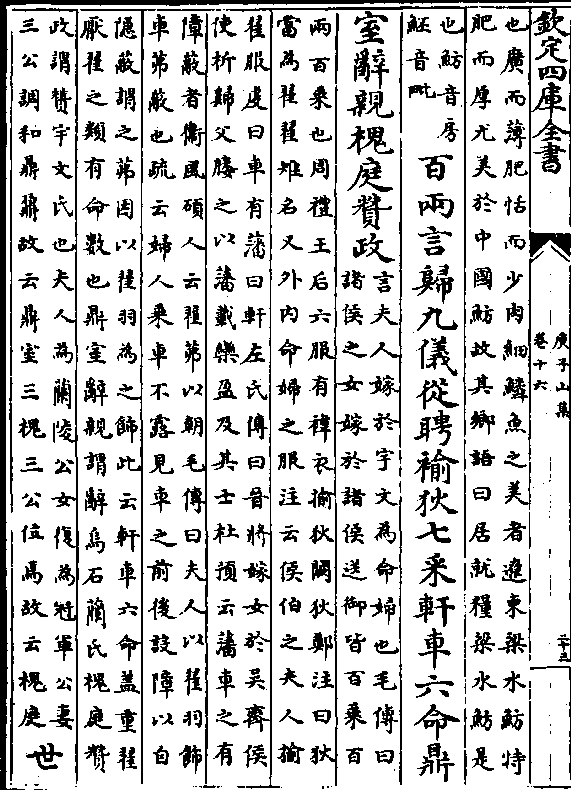 欽定四庫全書
庾子山集
卷十六
二十五
也廣而薄肥恬而少肉細鱗魚之美者遼東梁水魴特
肥而厚尤美於中國魴故其鄉語曰居就糧梁水魴是
也魴音房
魾音毗
百兩言歸九儀從聘褕狄七采軒車六命鼎
室辭親槐庭贊政
言夫人嫁於宇文為命婦也毛傳曰
諸侯之女嫁於諸侯送御皆百乘百
兩百乘也周禮王后六服有褘衣揄狄闕狄鄭注曰狄
當為翟翟雉名又外内命婦之服注云侯伯之夫人揄
翟服虔曰車有藩曰軒左氏傳曰晉將嫁女於吳齊侯
使析歸父媵之以藩載欒盈及其士杜預云藩車之有
障蔽者衞風碩人云翟茀以朝毛傳曰夫人以翟羽飾
車茀蔽也疏云婦人乘車不露見車之前後設障以自
隱蔽謂之茀因以翟羽為之飾此云軒車六命蓋重翟
厭翟之類有命數也鼎室辭親謂辭烏石蘭氏槐庭贊
政謂贊宇文氏也夫人為蘭陵公女復為冠軍公妻
三公調和鼎鼐故云鼎室三槐三公位焉故云槐庭
世